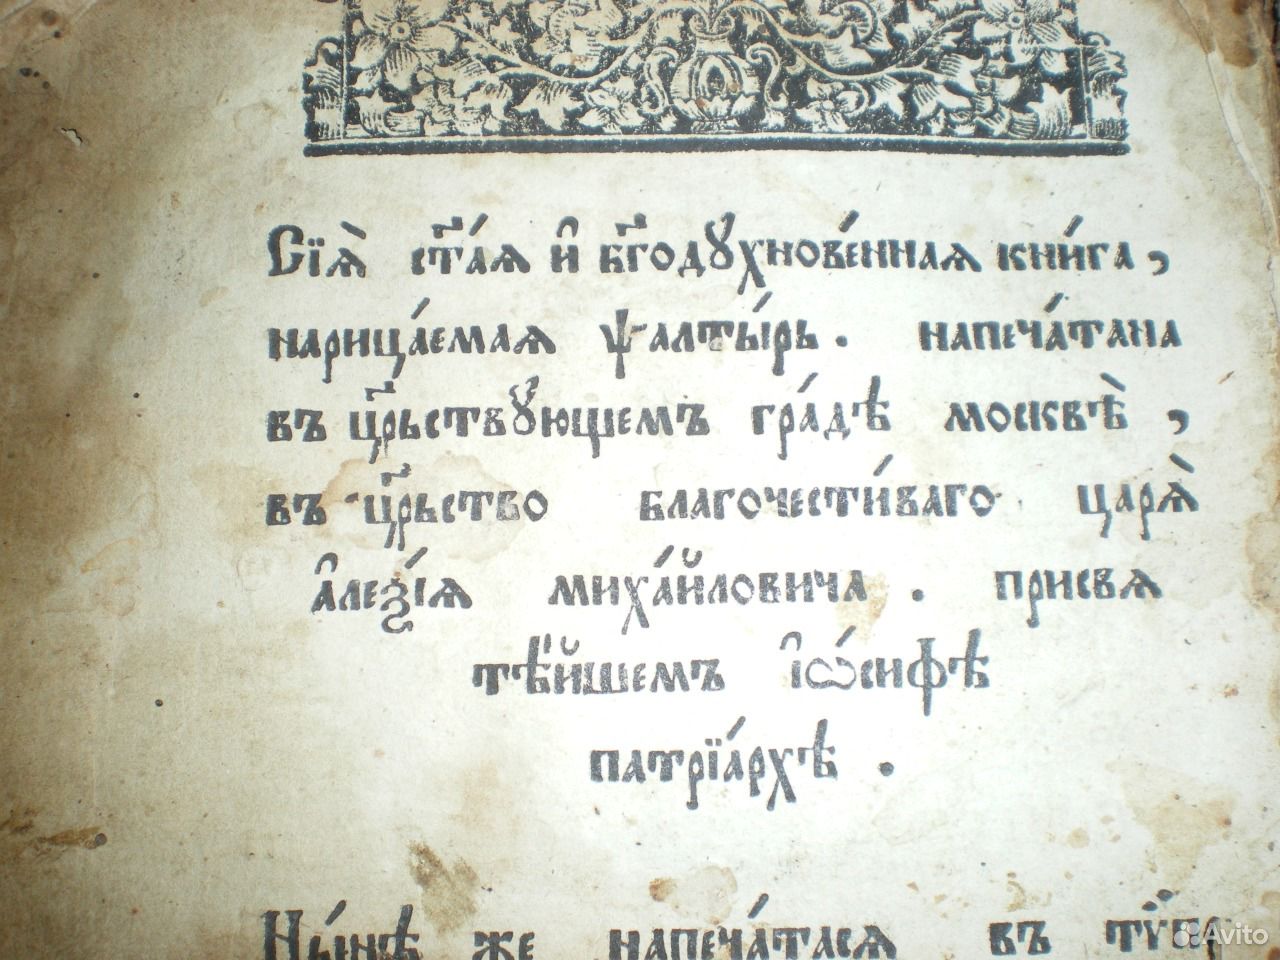 Сїѧ̀ ст҃а́ѧ и҆ бг҃одꙋхнове́ннаѧ кни́га,
нарица́емаѧ ѱалты́рь. напеча́тана
въ цр҃ьствꙋ́ющемъ гра́дѣ москвѣ̀,
въ цр҃ьство благочести́ваго царѧ̀
а҆леѯі́ѧ миха́йловича. присвѧ
тѣ́йшемъ і҆ѡ́сифѣ
патрїа́рхѣ.
Ны́нѣ же напеча́тасѧ въ
Avito